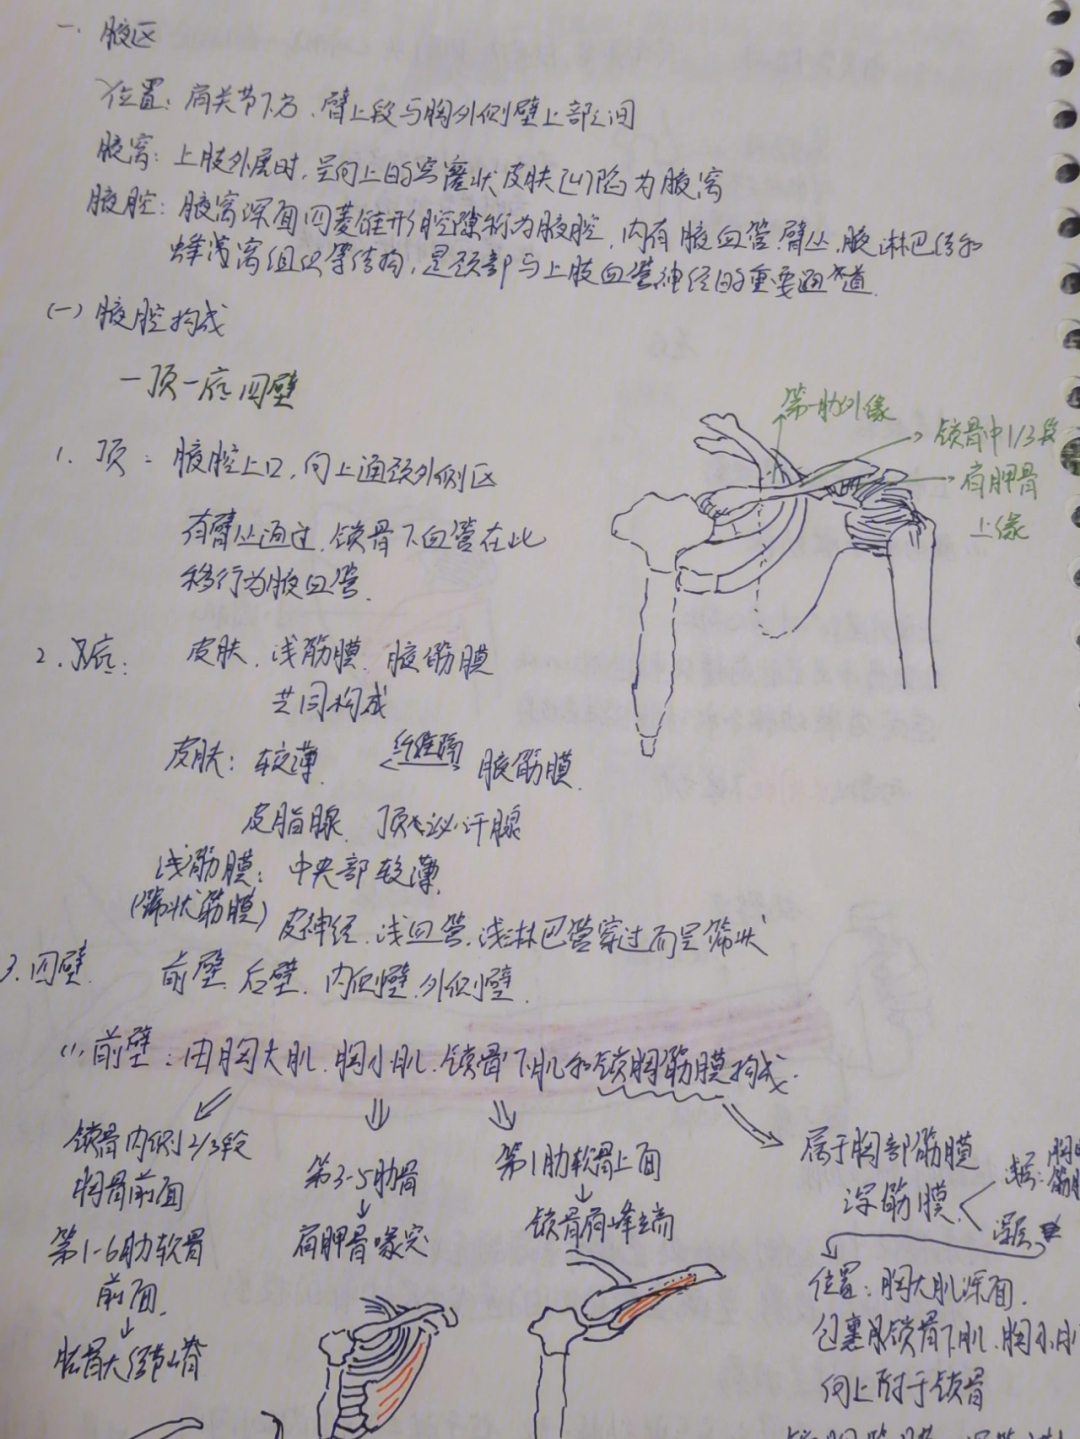 一. 腋区
位置：肩关节下方、臂上段与胸外侧壁上部之间
腋窝：上肢外展时，呈向上的穹窿状皮肤凹陷为腋窝
腋腔：腋窝深面四菱锥形腔隙称为腋腔，内有腋血管、臂丛、腋淋巴结和
蜂窝组织等结构，是颈部与上肢血管神经的重要通道.
(一) 腋腔构成
一顶一底四壁
第一肋外缘
锁骨中1/3段
肩胛骨
上缘
1. 顶：腋腔上口，向上通颈外侧区
有臂丛通过，锁骨下血管在此
移行为腋血管.
2. 底： 皮肤、浅筋膜、腋筋膜
共同构成
皮肤：较薄 纤维隔 腋筋膜.
皮脂腺、顶泌汗腺
浅筋膜：中央部较薄.
(筛状筋膜) 皮神经、浅血管、浅淋巴管穿过而呈筛状
3. 四壁 前壁、后壁、内侧壁、外侧壁.
(1) 前壁：由胸大肌、胸小肌、锁骨下肌和锁胸筋膜构成.
锁骨内侧2/3段
胸骨前面
第1-6肋软骨
前面.
↓
肱骨大结节嵴
第3-5肋骨
↓
肩胛骨喙突
第1肋软骨上面
↓
锁骨肩峰端
属于胸部筋膜
深筋膜
浅层：胸
筋
深层
位置：胸大肌深面.
包裹锁骨下肌、胸小肌
向上附于锁骨